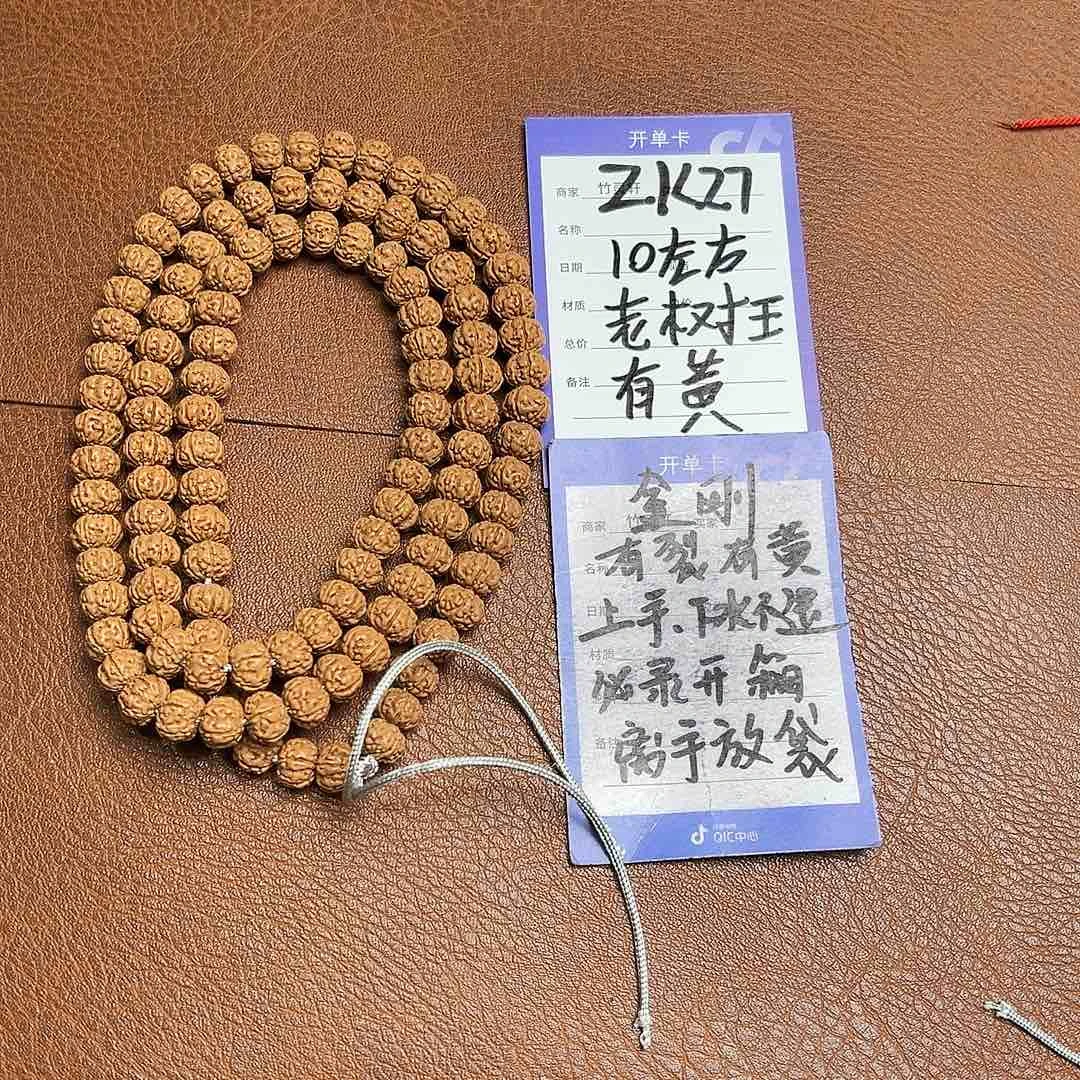 开单卡
商家 竹
ZK27
名称
10左右
日期
材质
老树王
总价
有黄
备注
开单卡
金刚
商家 竹
有裂有黄
名称
上手、下水不退
日期
材质
必录开箱
离手放袋
备注
QIC中心